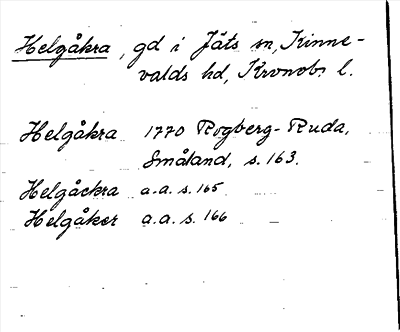 Helgåkra, gd i Jäts sn, Kinne-
valds hd, Kronob. l.
Helgåkra 1770 Rogberg-Ruda,
Småland, s. 163.
Helgåckra a.a. s. 165
Helgåker a.a. s. 166